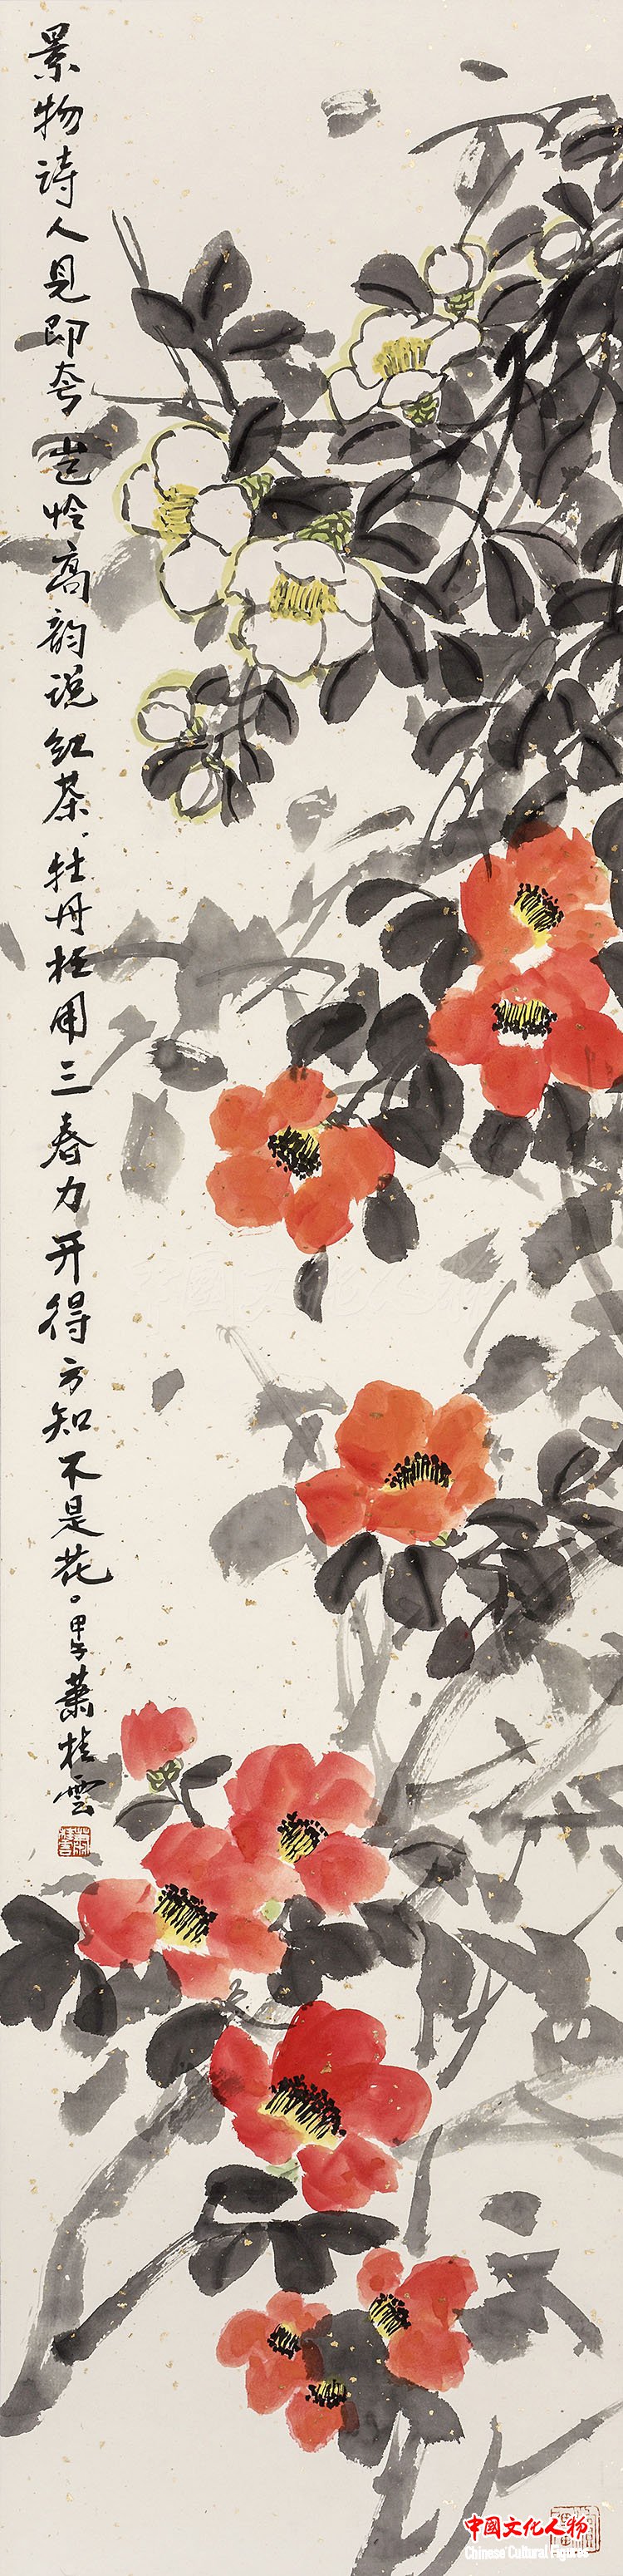 景物詩人見即夸豈怜高韵说红茶牡丹枉用三春力开得方知不是花甲午萧桂雲
中國文化人物
Chinese Cultural Figures